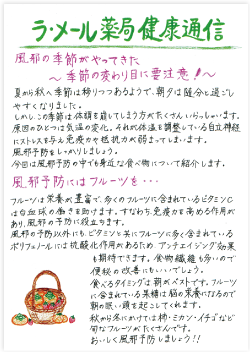 ラ・メール薬局健康通信
風邪の季節がやってきた
〜季節の変わり目に要注意!〜
夏から秋へ季節は移りつつあるようで、朝夕は随分と過ごし
やすくなりました。
しかしこの季節は体調を崩してしまう方がたくさんいらっしゃいます。
原因のひとつは気温の変化。それが体温を調整している自立神経
にストレスを与え免疫力や抵抗力が弱まってしまいます。
風邪予防をしっかりしましょう。
今回は風邪予防の中でも身近な食べ物について紹介します。
風邪予防にはフルーツを…
フルーツは栄養が豊富で、多くのフルーツに含まれているビタミンC
は白血球の働きを助けます。すなわち、免疫力を高める作用が
あり、風邪の予防に役立ちます。
風邪予防以外にも、ビタミンと共にフルーツに多く含まれている
ポリフェノールには抗酸化作用があるため、アンチエイジング効果
も期待できます。食物繊維も多いので
便秘の改善にもいいでしょう。
食べるタイミングは朝がベストです。フルーツ
に含まれている果糖は脳の栄養になるので
朝の眠い頭を起こしてくれます。
秋から冬にかけては柿・ミカン・イチゴなど
旬なフルーツがたくさんです。
おいしく風邪予防しましょう!!